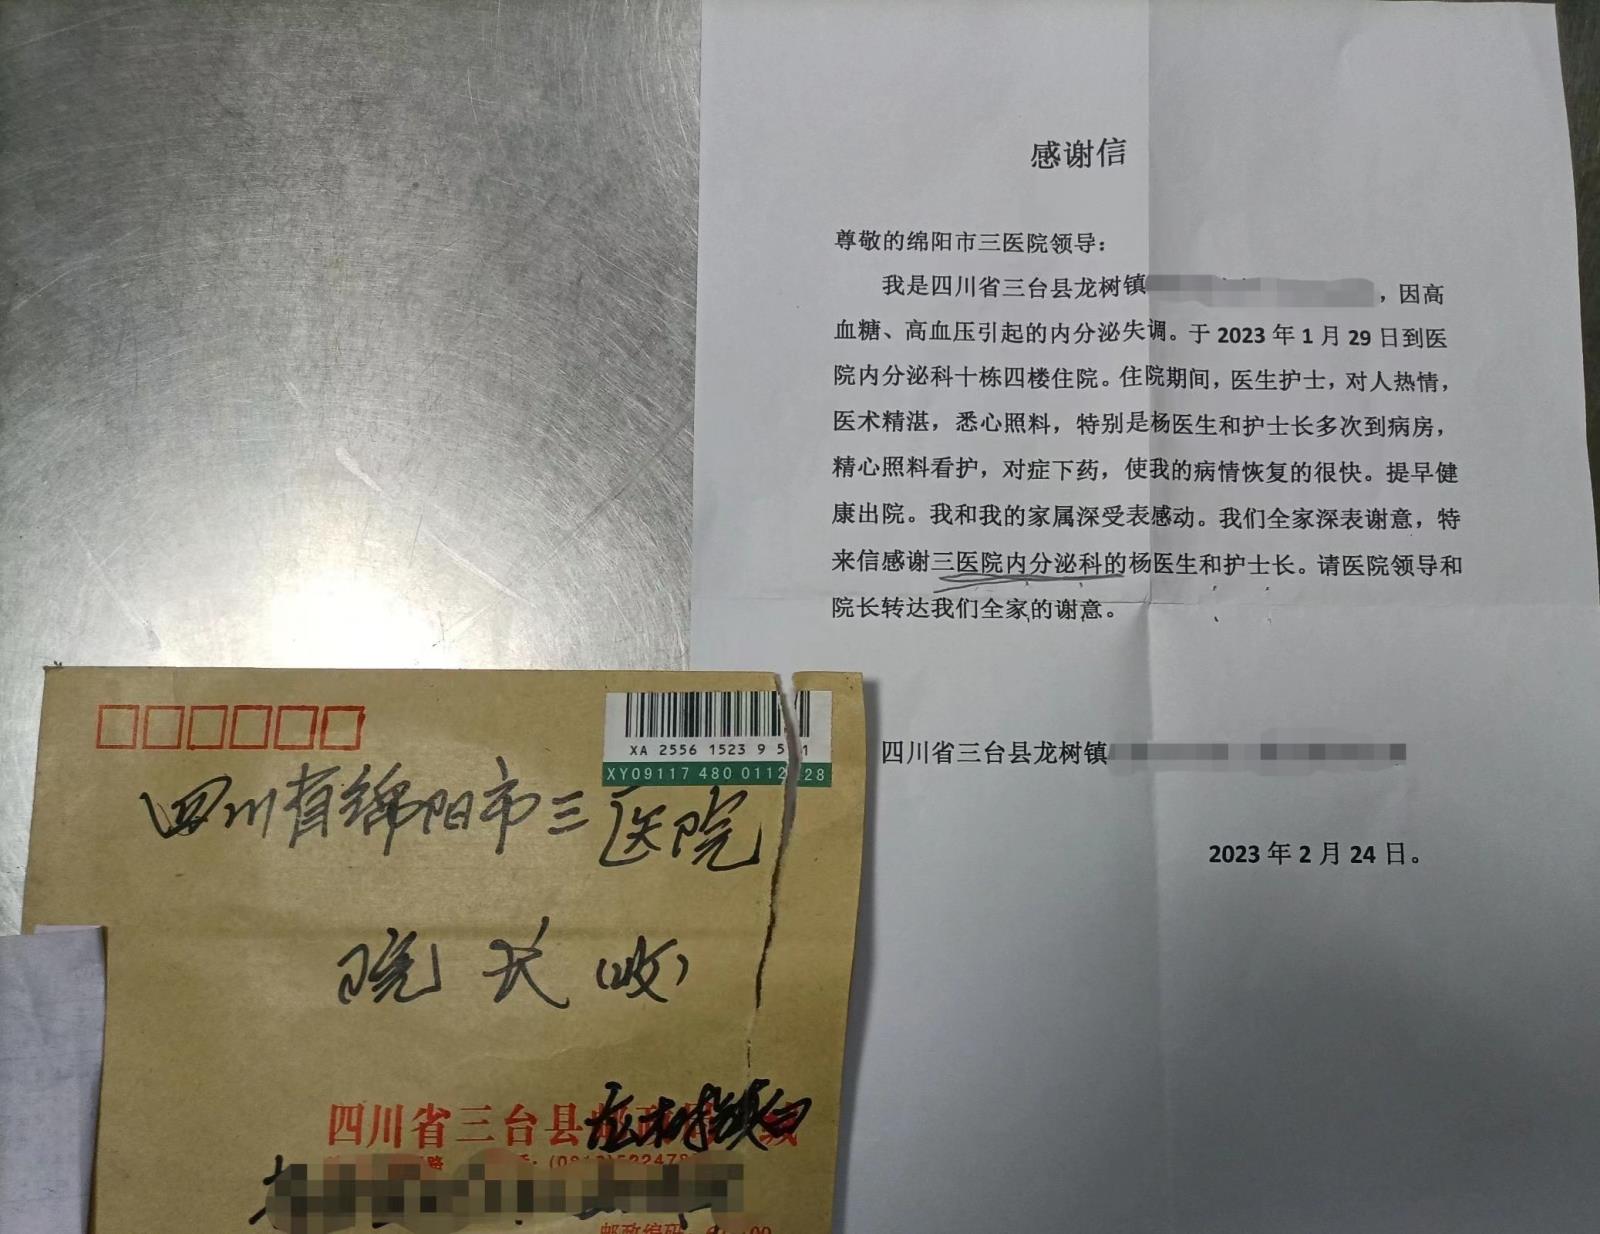 感谢信
尊敬的绵阳市三医院领导：
我是四川省三台县龙树镇，因高
血糖、高血压引起的内分泌失调。于 2023 年 1 月 29 日到医
院内分泌科十栋四楼住院。住院期间，医生护士，对人热情，
医术精湛，悉心照料，特别是杨医生和护士长多次到病房，
精心照料看护，对症下药，使我的病情恢复的很快。提早健
康出院。我和我的家属深受表感动。我们全家深表谢意，特
来信感谢三医院内分泌科的杨医生和护士长。请医院领导和
院长转达我们全家的谢意。
四川省三台县龙树镇
2023 年 2 月 24 日。
XA 2556 1523 9 5 1
XY09117 480 0112 28
四川省绵阳市三医院
院长(收)
四川省三台县
邮政编码